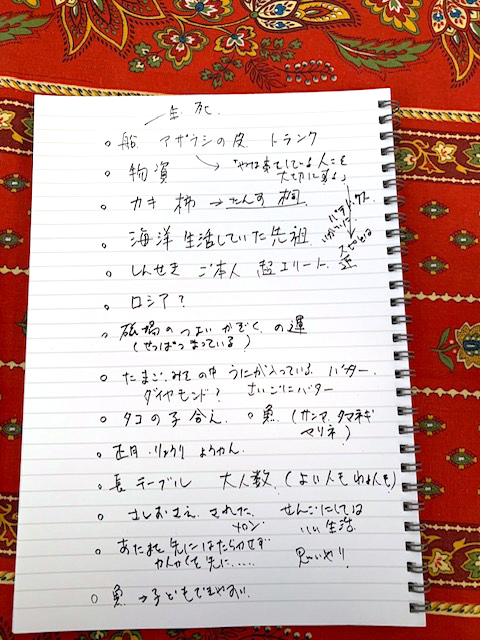 生 死
○ 船 アザラシの皮 トランク
○ 物資 → 「やはり
大切に
○ カキ 柿 → たんす 桐
海洋生活していた先祖
○ しんせき ご本人 超エリート
○ ロシア?
の つよい かぞく の運
(せっぱつまっている)
○ たまご、みその中 うにが入っている バター
ダイヤモンド? さいごにバター
○ タコの子 合え ○ 魚 (サンマ、タマネギ
マリネ)
○ 正月 りょうり ようかん
○ 長テーブル 大人数 (よい人もわるい人も)
○ さしおさえ された せんごにしては
メロン いい 生活
○ あたまを先にはたらかせず
かんかくを先に..... 思いやり
○ 魚 → 子ども